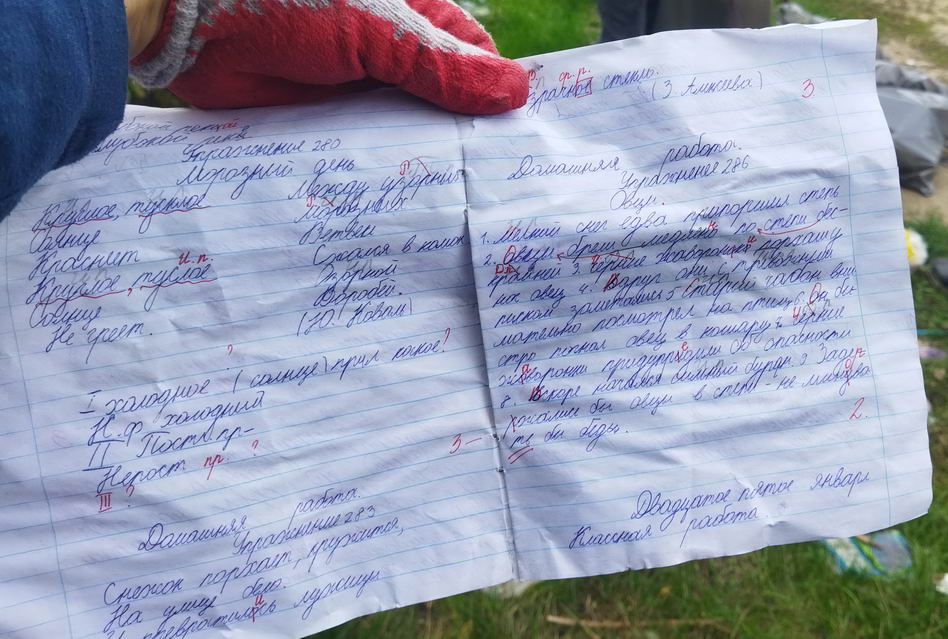 Упражнение 280
Морозный день
Круглое, тусклое
Солнце
Краснеет
и.п.
Круглое, тусклое
Солнце
Не греет.
Между узорных
Морозных
Ветвей
Сжался в комок
Зоркой
Воробей.
(Ю. Коваль)
?
I холодное (солнце) прил какое?
Н.ф. холодный
II Пост. пр-
Непост пр. ?
III ?
3-
Домашняя работа.
Упражнение 283
Снежок порхает, кружится,
На улице бело.
И превратились лужицы
ф.р.
стекло.
(З. Александрова)
3
Домашняя работа.
Упражнение 286
Овцы.
1. Мелкий снег едва припорошил степь
2. Овцы брели медлено по степи бес-
крайней 3. Чёрные жаворонки
ник овец 4. Вдруг они с тревожным
писком заметались 5 Старый чабан вни
мательно посмотрел на птиц 6. Он бы
стро погнал овец в кошару 7 Чёрные
жаворонки придупредили об опасности
8. Вскоре начался снежный буран. 9 Задер
жались бы овцы в степи - не миновать
бы беды.
2.
Двадцатое пятое января
Классная работа.